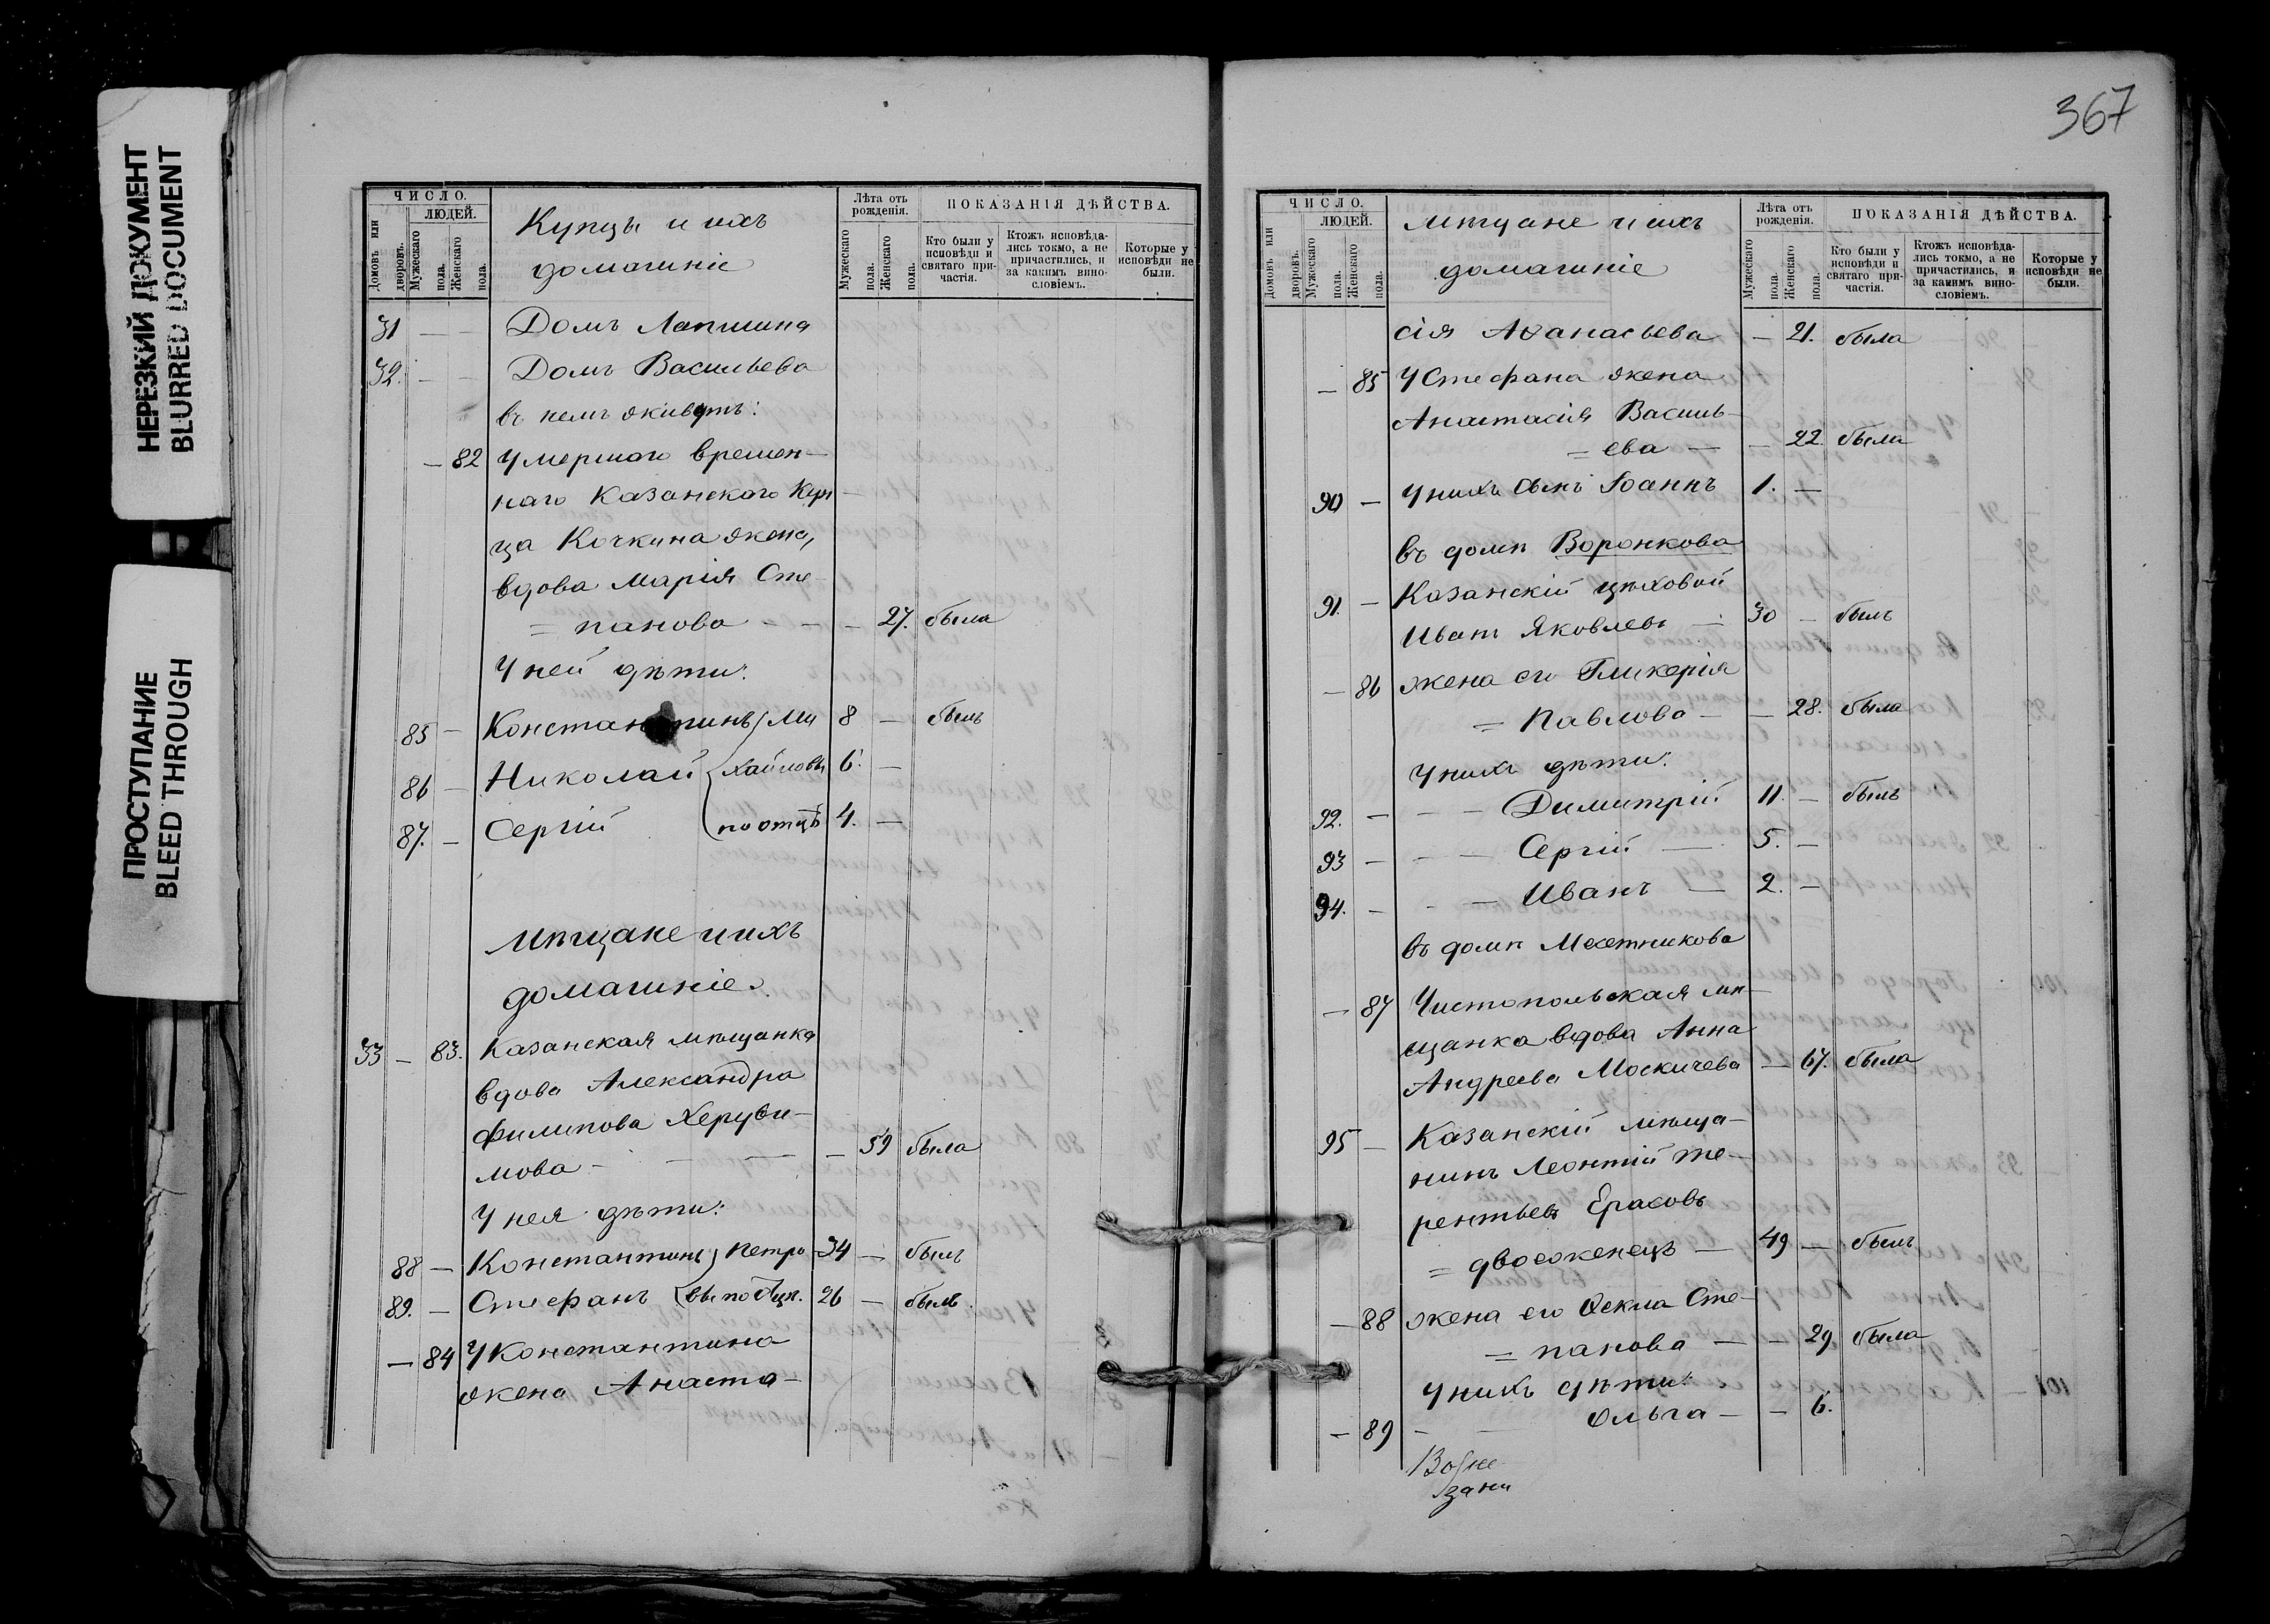 НЕРЕЗКИЙ ДОКУМЕНТ
BLURRED DOCUMENT
ПРОСТУПАНИЕ
BLEED THROUGH
ЧИСЛО.
ЛЮДЕЙ.
Домовъ или дворовъ.
Мужескаго пола.
Женскаго пола.
Купцы и ихъ
домашніе
Лѣта отъ рожденія.
Мужескаго пола.
Женскаго пола.
ПОКАЗАНІЯ ДѢЙСТВА.
Кто были у исповѣди и святаго причастія.
Ктожъ исповѣдались токмо, а не причастились, и за какимъ винословіемъ.
Которые у исповѣди не были.
31 — — Домъ Лапшина
32. — — Домъ Васильева
въ немъ живутъ:
— 82 Умершаго времен-
наго Казанскаго Куп
ца Кочкина жена,
вдова Марія Сте-
= панова — — — 27. была
У ней дѣти:
85 — Константинъ Ми 8 — былъ
86 — Николай хайловы 6. —
87. — Сергій по отцѣ 4. —
Мѣщане и ихъ
домашніе.
33 — 83. Казанская мѣщанка
вдова Александра
Филипова Херуви-
мова — — — — 59 была
У нея дѣти:
88 — Константинъ Петро 34 — былъ
89. — Стефанъ вы по отцѣ. 26 — былъ.
— 84 У Константина
жена Анаста-
367
ЧИСЛО.
ЛЮДЕЙ.
Домовъ или дворовъ.
Мужескаго пола.
Женскаго пола.
Мѣщане и ихъ
домашніе
Лѣта отъ рожденія.
Мужескаго пола.
Женскаго пола.
ПОКАЗАНІЯ ДѢЙСТВА.
Кто были у исповѣди и святаго причастія.
Ктожъ исповѣдались токмо, а не причастились, и за какимъ винословіемъ.
Которые у исповѣди не были.
сія Аѳанасьева — 21. была
— 85 У Стефана жена
Анастасія Василь-
= ева — — 22. была
90 — У нихъ сынъ Іоаннъ 1. —
въ домѣ Воронкова
91. — Казанскій цѣховой
Иванъ Яковлевъ — 30 — былъ
— 86 жена его Гликерія
= Павлова — — 28. была
У нихъ дѣти:
92. — — Димитрій 11. — былъ
93 — — — Сергій — 5. —
94. — — — Иванъ — 2. —
въ домѣ Мехетникова
— 87 Чистопольская мѣ-
щанка вдова Анна
Андреева Москичева — 67. была
95 — Казанскій мѣща-
нинъ Леонтій Те-
рентьевъ Ерасовъ
= двоеженецъ — 49 — былъ
— 88 жена его Ѳекла Сте-
= панова — — 29 была
У нихъ дѣти:
— 89 — Ольга — — 6.